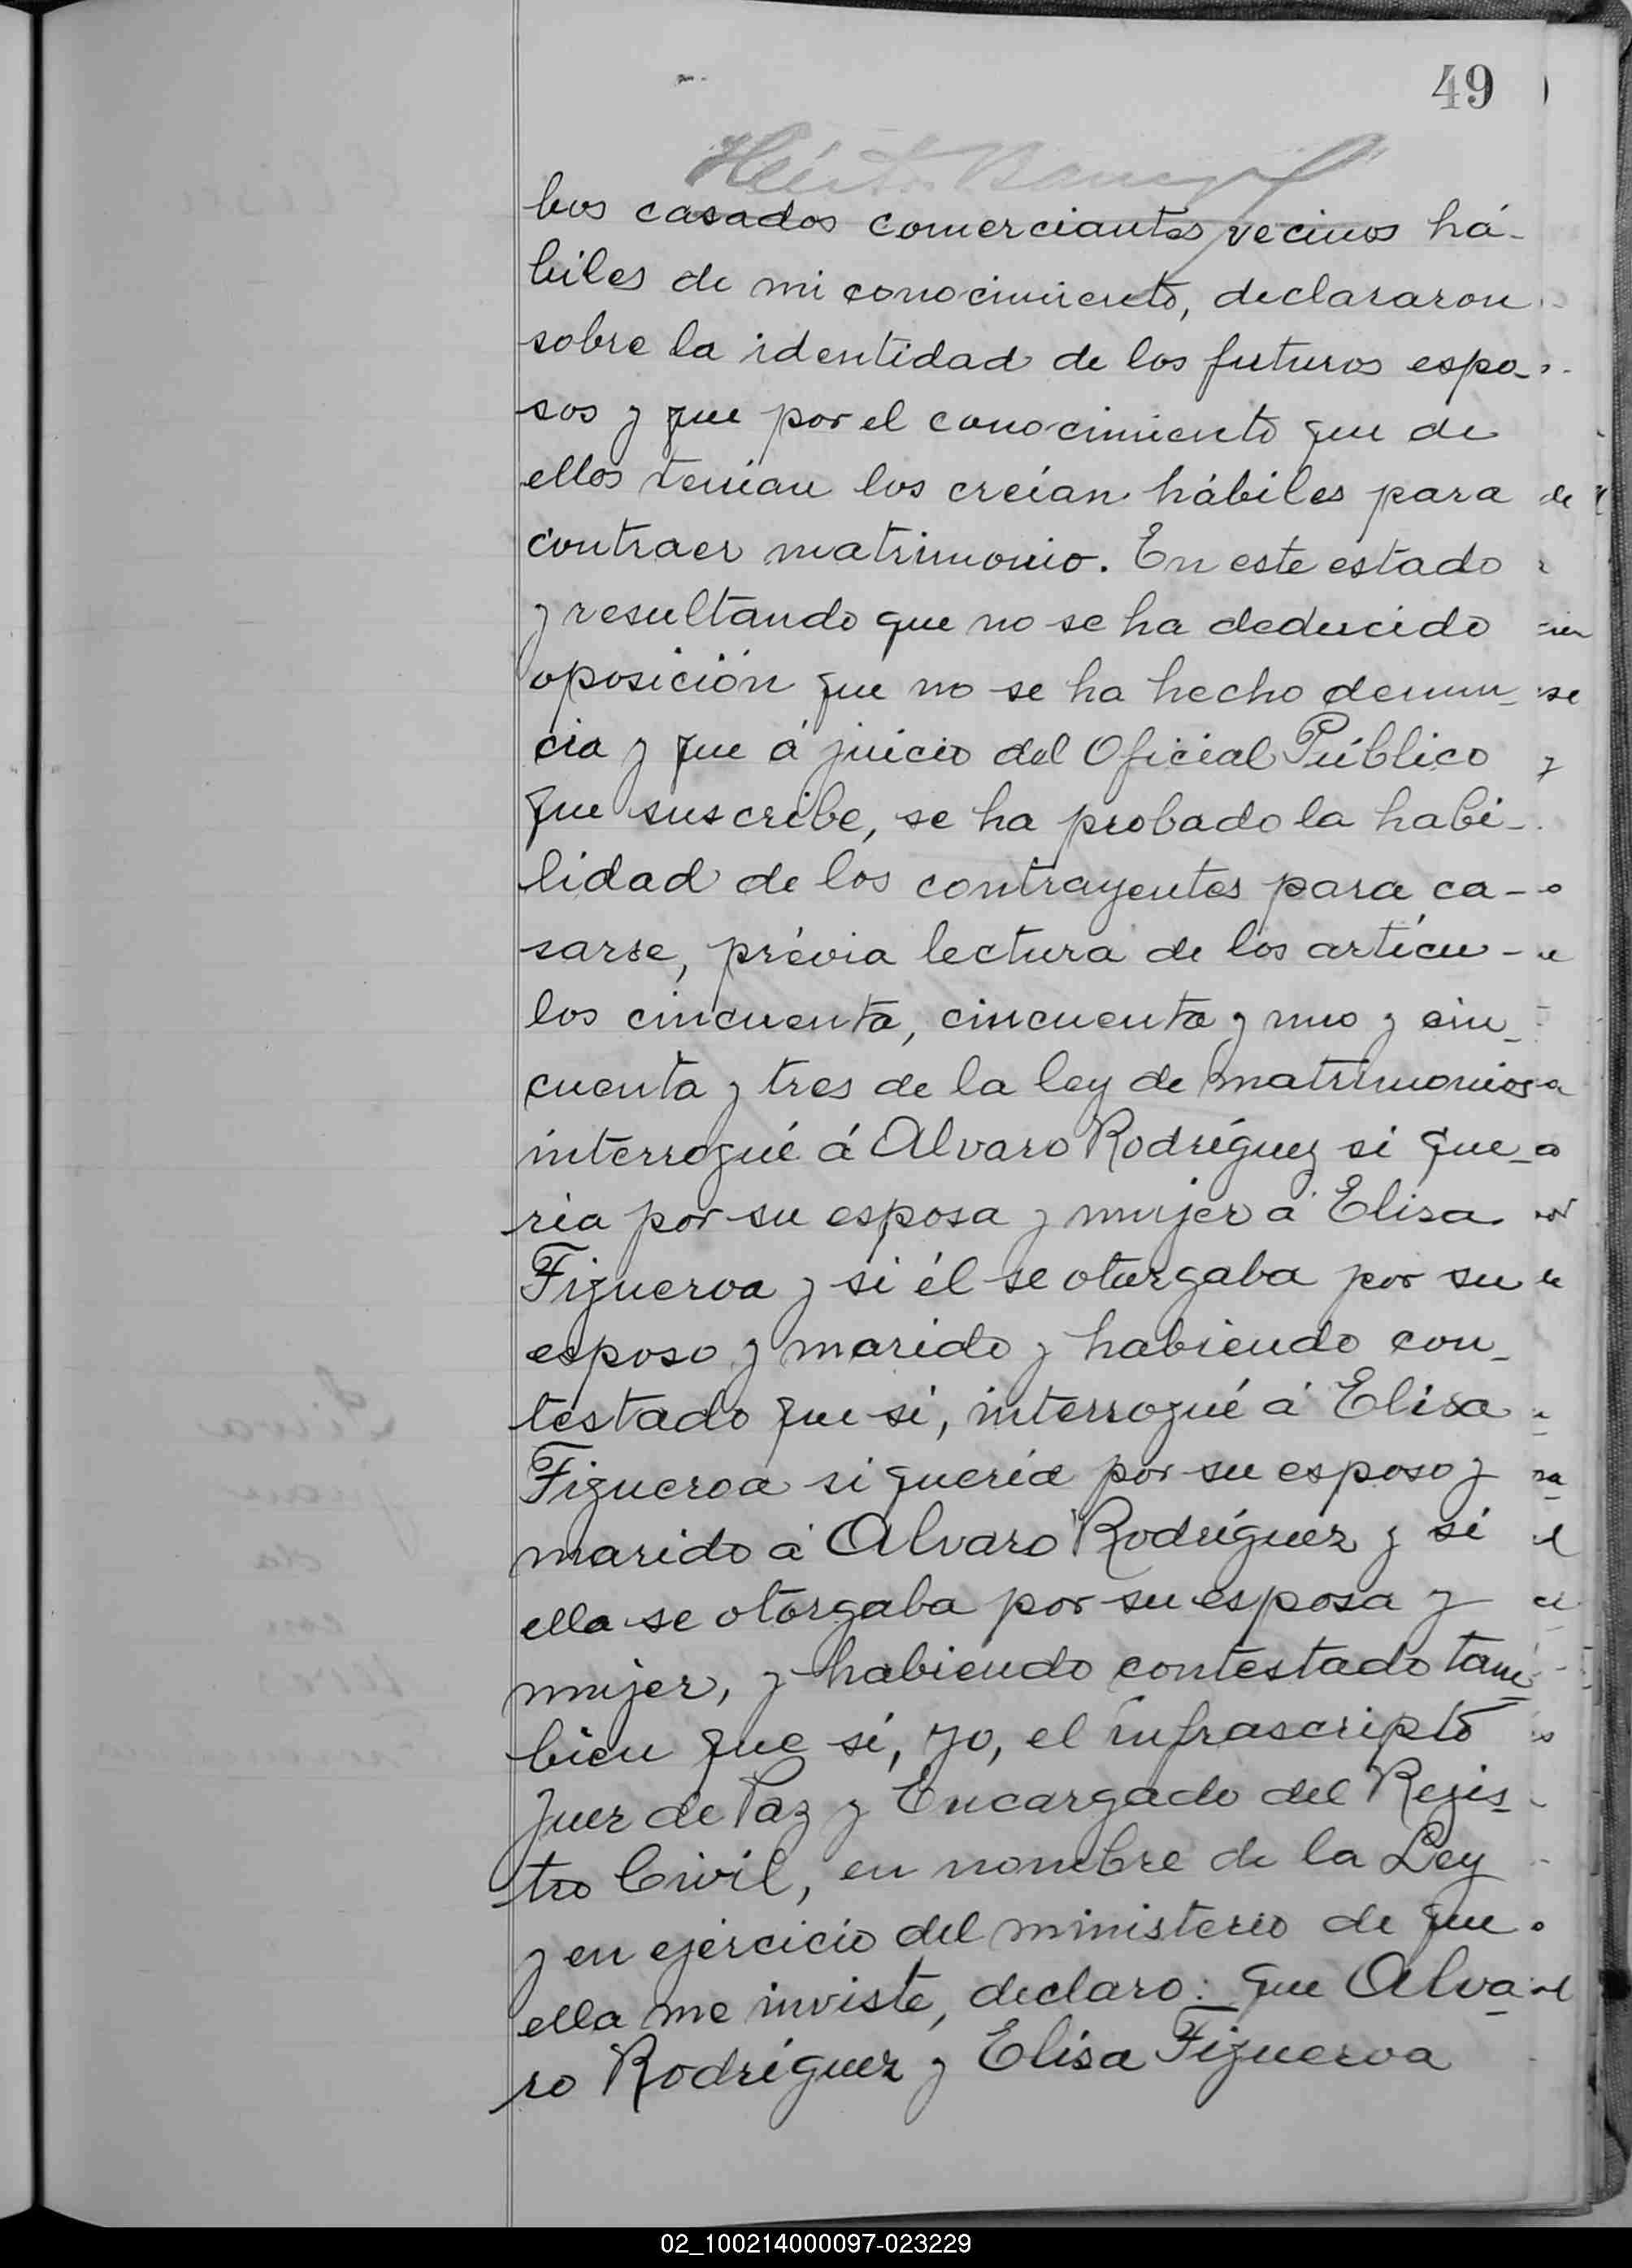 49
Héctor
bos casados comerciantes vecinos há-
biles de mi conocimiento, declararon
sobre la identidad de los futuros espo-
sos y que por el conocimiento que de
ellos tenían los creían hábiles para
contraer matrimonio. En este estado
y resultando que no se ha deducido
oposición que no se ha hecho denun-
cia y que á juicio del Oficial Público
que suscribe, se ha probado la habi-
lidad de los contrayentes para ca-
sarse, prévia lectura de los artícu-
los cincuenta, cincuenta y uno y cin-
cuenta y tres de la ley de matrimonios
interrogué á Alvaro Rodríguez si que-
ria por su esposa y mujer á Elisa
Figueroa y si él se otorgaba por su
esposo y marido y habiendo con-
testado que si, interrogué á Elisa
Figueroa si quería por su esposo y
marido á Alvaro Rodríguez y si
ella se otorgaba por su esposa y
mujer, y habiendo contestado tam-
bien que si, yo, el infrascripto
Juez de Paz y Encargado del Regis-
tro Civil, en nombre de la Ley
y en ejercicio del ministerio de que
ella me inviste, declaro: que Alva-
ro Rodríguez y Elisa Figueroa
02_100214000097-023229